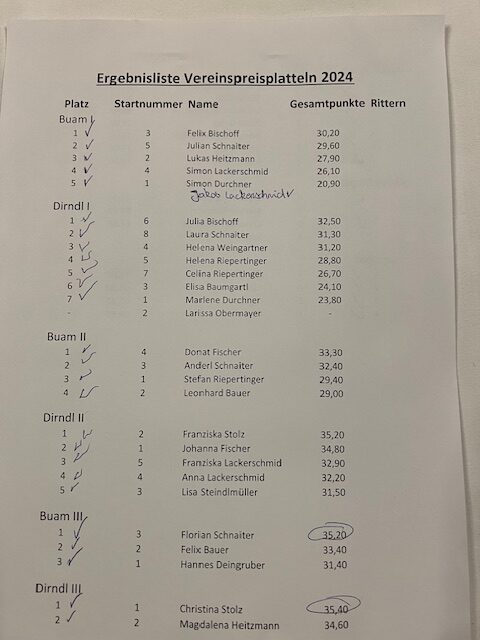 Ergebnisliste Vereinspreisplatteln 2024
Platz Startnummer Name Gesamtpunkte Rittern
Buam I
1 3 Felix Bischoff 30,20
2 5 Julian Schnaiter 29,60
3 2 Lukas Heitzmann 27,90
4 4 Simon Lackerschmid 26,10
5 1 Simon Durchner 20,90
Jakob Lackerschmid
Dirndl I
1 6 Julia Bischoff 32,50
2 8 Laura Schnaiter 31,30
3 4 Helena Weingartner 31,20
4 5 Helena Riepertinger 28,80
5 7 Celina Riepertinger 26,70
6 3 Elisa Baumgartl 24,10
7 1 Marlene Durchner 23,80
- 2 Larissa Obermayer -
Buam II
1 4 Donat Fischer 33,30
2 3 Anderl Schnaiter 32,40
3 1 Stefan Riepertinger 29,40
4 2 Leonhard Bauer 29,00
Dirndl II
1 2 Franziska Stolz 35,20
2 1 Johanna Fischer 34,80
3 5 Franziska Lackerschmid 32,90
4 4 Anna Lackerschmid 32,20
5 3 Lisa Steindlmüller 31,50
Buam III
1 3 Florian Schnaiter 35,20
2 2 Felix Bauer 33,40
3 1 Hannes Deingruber 31,40
Dirndl III
1 1 Christina Stolz 35,40
2 2 Magdalena Heitzmann 34,60